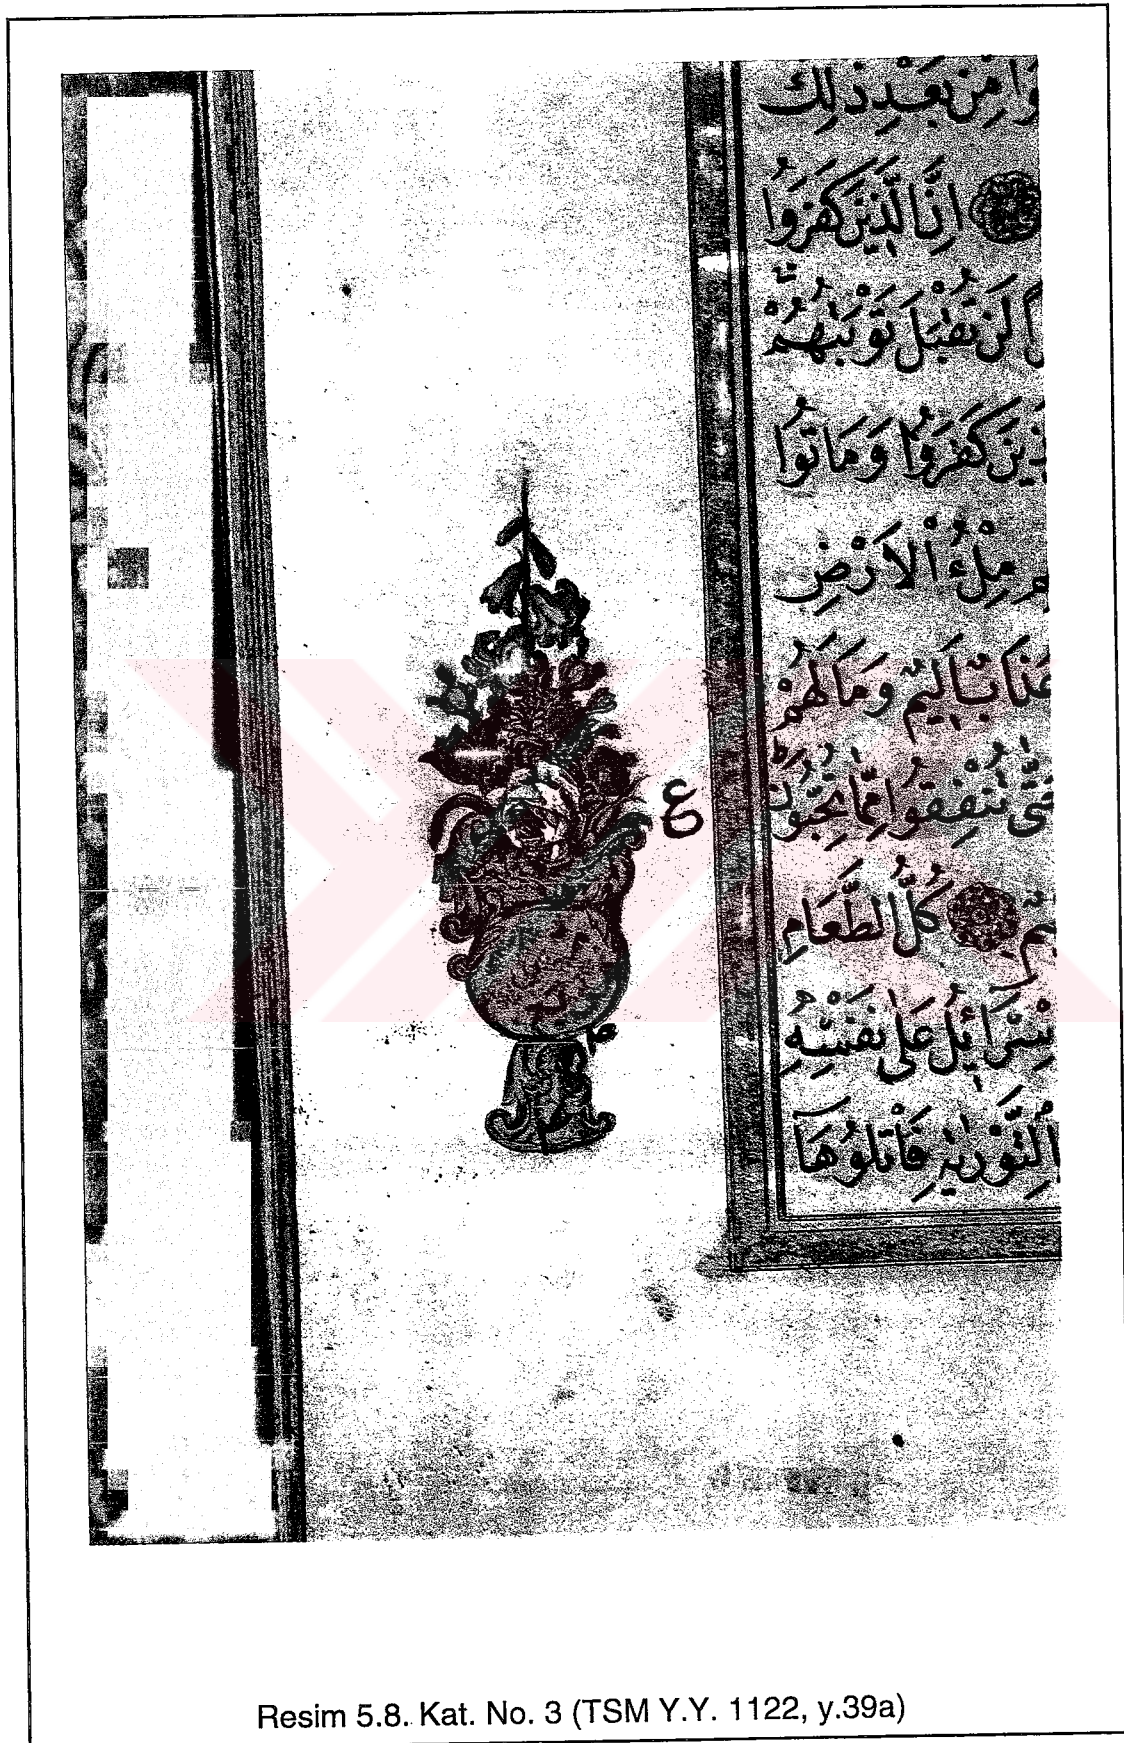 وَا مِنْ بَعْدِ ذٰلِكَ
اِنَّ الَّذٖينَ كَفَرُوا
لَنْ تُقْبَلَ تَوْبَتُهُمْ
كَفَرُوا وَمَاتُوا
مِلْءُ الْاَرْضِ
عَذَابٌ اَلٖيمٌ وَمَا لَهُمْ
تُنْفِقُوا مِمَّا تُحِبُّونَ
ع
كُلُّ الطَّعَامِ
عَلٰى نَفْسِهٖ
التَّوْرٰيةِ فَاتْلُوهَا
Resim 5.8. Kat. No. 3 (TSM Y.Y. 1122, y.39a)